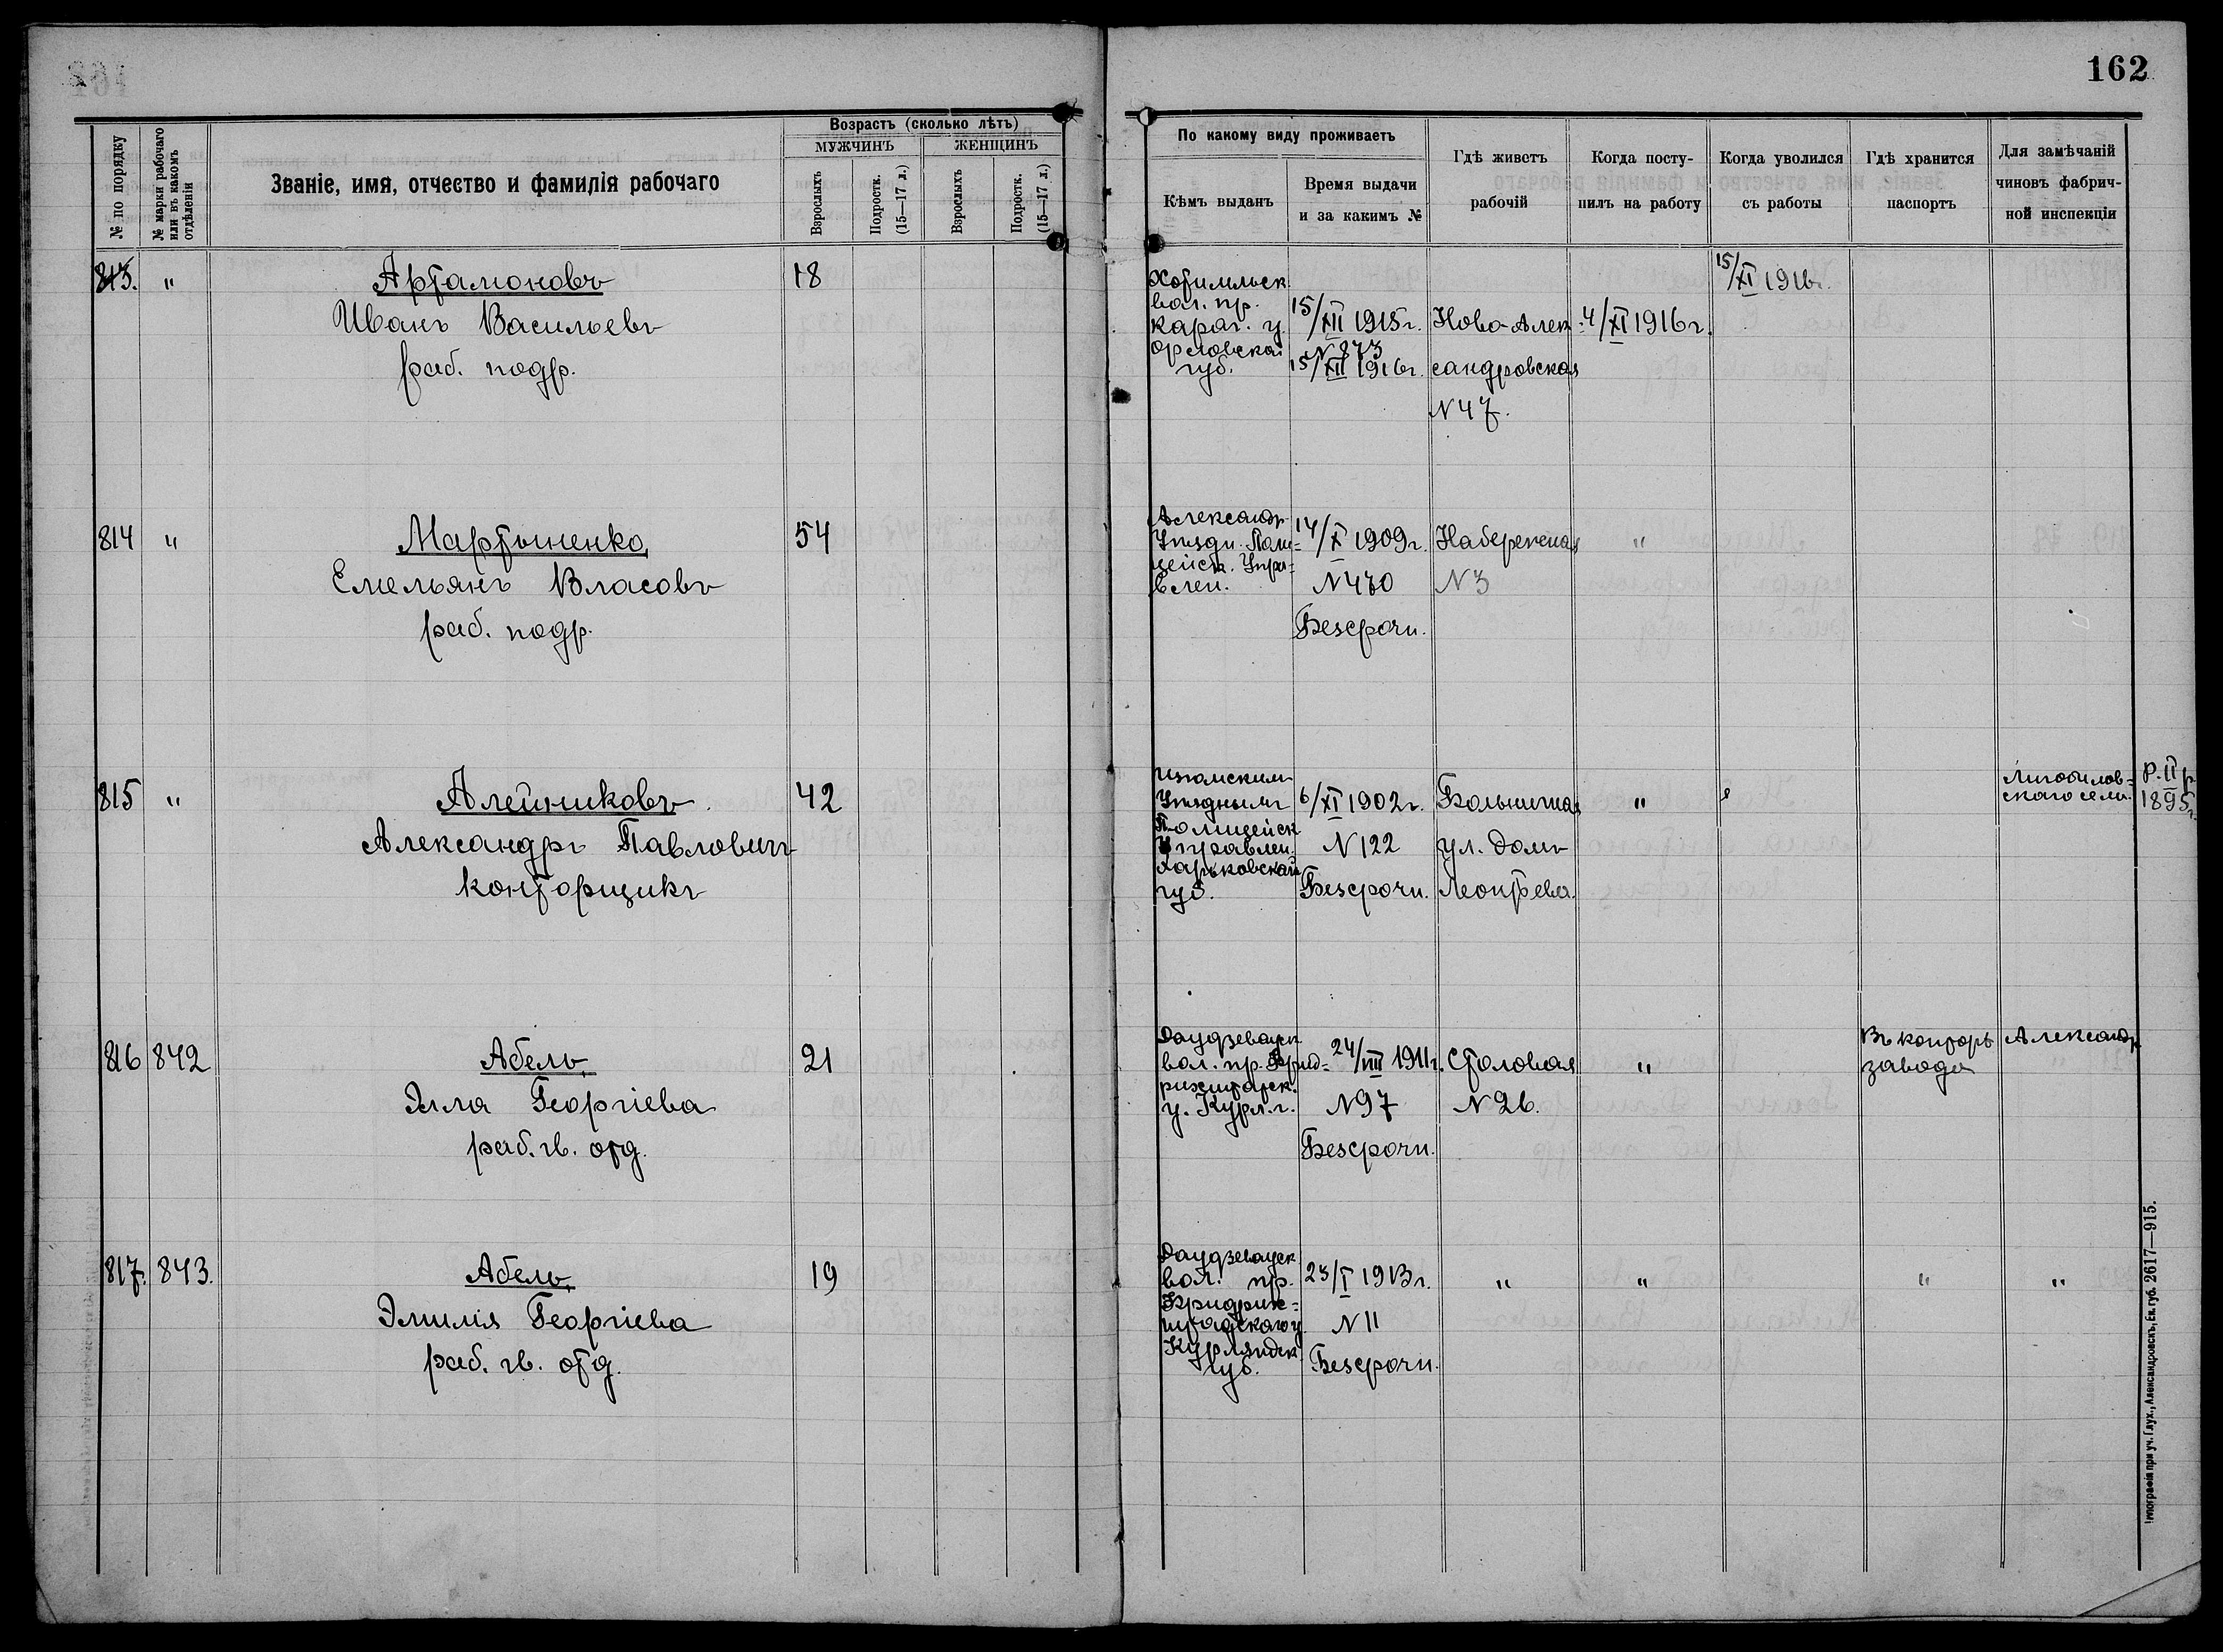 162
№ по порядку
№ марки рабочаго или въ какомъ отдѣленіи
Званіе, имя, отчество и фамилія рабочаго
Возрастъ (сколько лѣтъ)
МУЖЧИНЪ
ЖЕНЩИНЪ
Взрослыхъ
Подростк. (15—17 л.)
Взрослыхъ
Подростк. (15—17 л.)
По какому виду проживаетъ
Кѣмъ выданъ
Время выдачи
и за какимъ №
Гдѣ живетъ
рабочій
Когда посту-
пилъ на работу
Когда уволился
съ работы
Гдѣ хранится
паспортъ
Для замѣчаній
чиновъ фабрич-
ной инспекціи
813. "
Артамоновъ
Иванъ Васильевъ
раб. подр.
18
Хотимльск.
вол. пр.
Карач. у.
Орловской
губ.
15/XII 1915 г.
N 873
15/XII 1916 г.
Ново-Алек-
сандровская
N 47.
4/XI 1916 г.
15/XI 1916 г.
814 "
Мартыненко
Емельянъ Власовъ
раб. подр.
54
Александр.
Уѣздн. Поли=
цейск. Упра=
влен.
14/X 1909 г.
N 470
Безсрочн.
Набережная
N 3
"
815 "
Алейниковъ
Александръ Павловичъ
конторщикъ
42
Изюмскимъ
Уѣзднымъ
Полицейск.
Управлен.
Харьковской
губ.
6/XI 1902 г.
N 122
Безсрочн.
Больничная
ул. домъ
Леонтьева.
"
скаго
р. II р
1895 г.
816 842
Абель
Элла Георгіева
раб. гв. отд.
21
Даудзевасск
вол. пр. Фрид=
рихштатск.
у. Курл. г.
24/VIII 1911 г.
N 97
Безсрочн.
Столовая
N 26.
"
Въ конторѣ
завода
Александр
817. 843.
Абель
Эмилія Георгіева
раб. гв. отд.
19
Даудзевасск
вол. пр.
Фридрих=
штадскаго у.
Курляндск.
губ.
23/I 1913 г.
N 11
Безсрочн.
"
"
"
"
Типографія при уч. Глух., Александровскъ, Ек. губ. 2617—915.